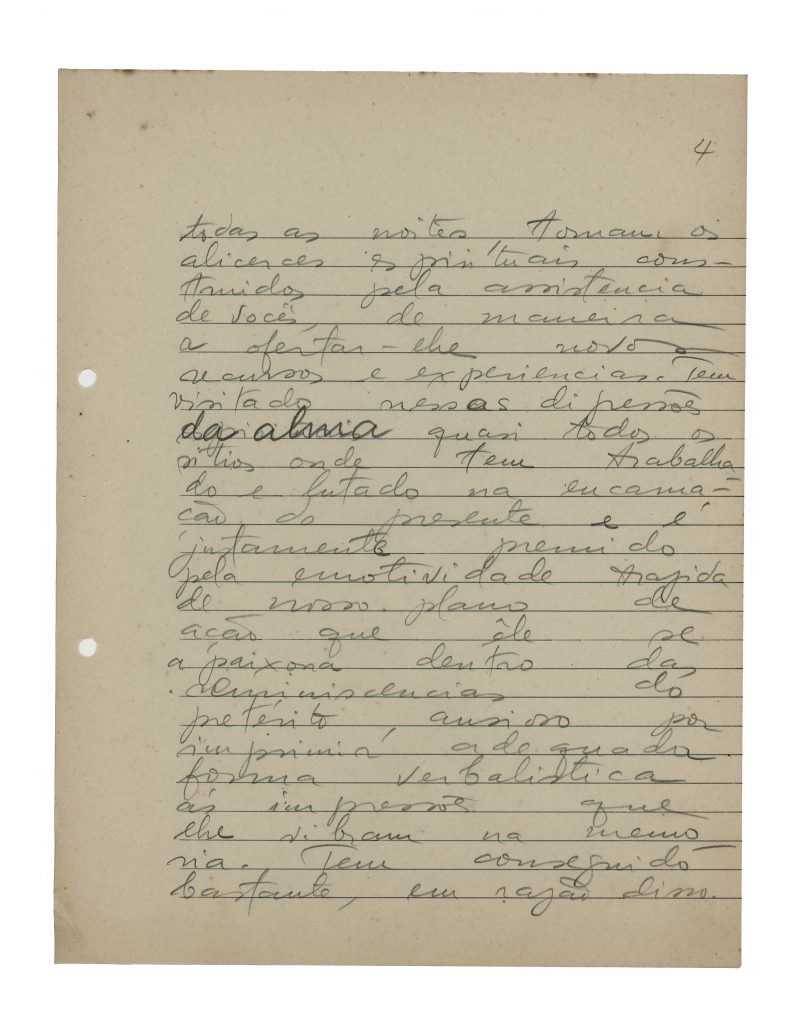 4
todas as noites, tomam os
alicerces espirituais cons-
truidos pela assistencia
de vocês, de maneira
a ofertar-lhe novos
recursos e experiencias. Tem
visitado nessas digressões
da alma quasi todos os
sitios onde tem trabalha-
do e lutado na encarna-
ção do presente e é
justamente premido
pela emotividade
de nosso plano de
ação que êle se
apaixona dentro das
reminiscencias do
pretérito, ansioso por
imprimir adequada
forma verbalistica
ás impressões que
lhe vibram na memo-
ria. Tem conseguido
bastante, em razão disso.